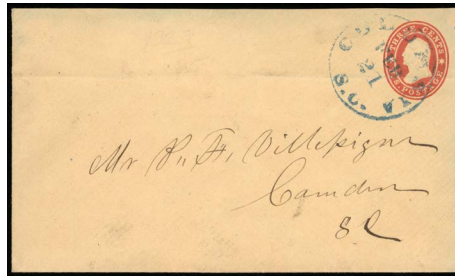 THREE CENTS
U.S. POSTAGE
21
S.C.
Mr P. F. Villepigue
Camden
SC